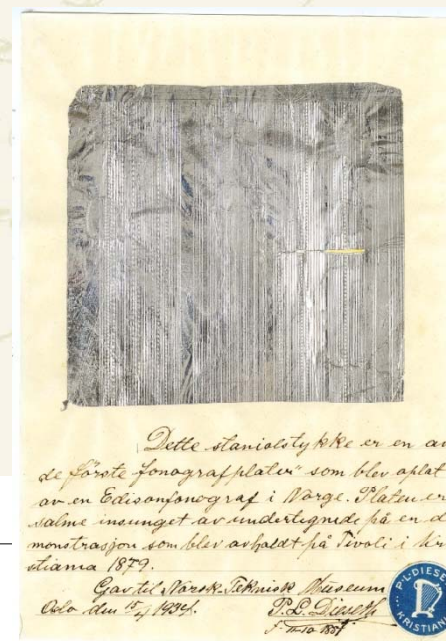 Dette staniolstykke er en av
de første "fonografplater" som blev oplat
av en Edisonfonograf i Norge. Platen er
salme insunget av undertegnede på en de
monstrasjon som blev avholdt på Tivoli i Kri
stiania 1879.
Gav til Norsk Teknisk Museum
Oslo den 17/4 1934.
P. L. Dieseth
P.L. DIESE
KRISTIAN